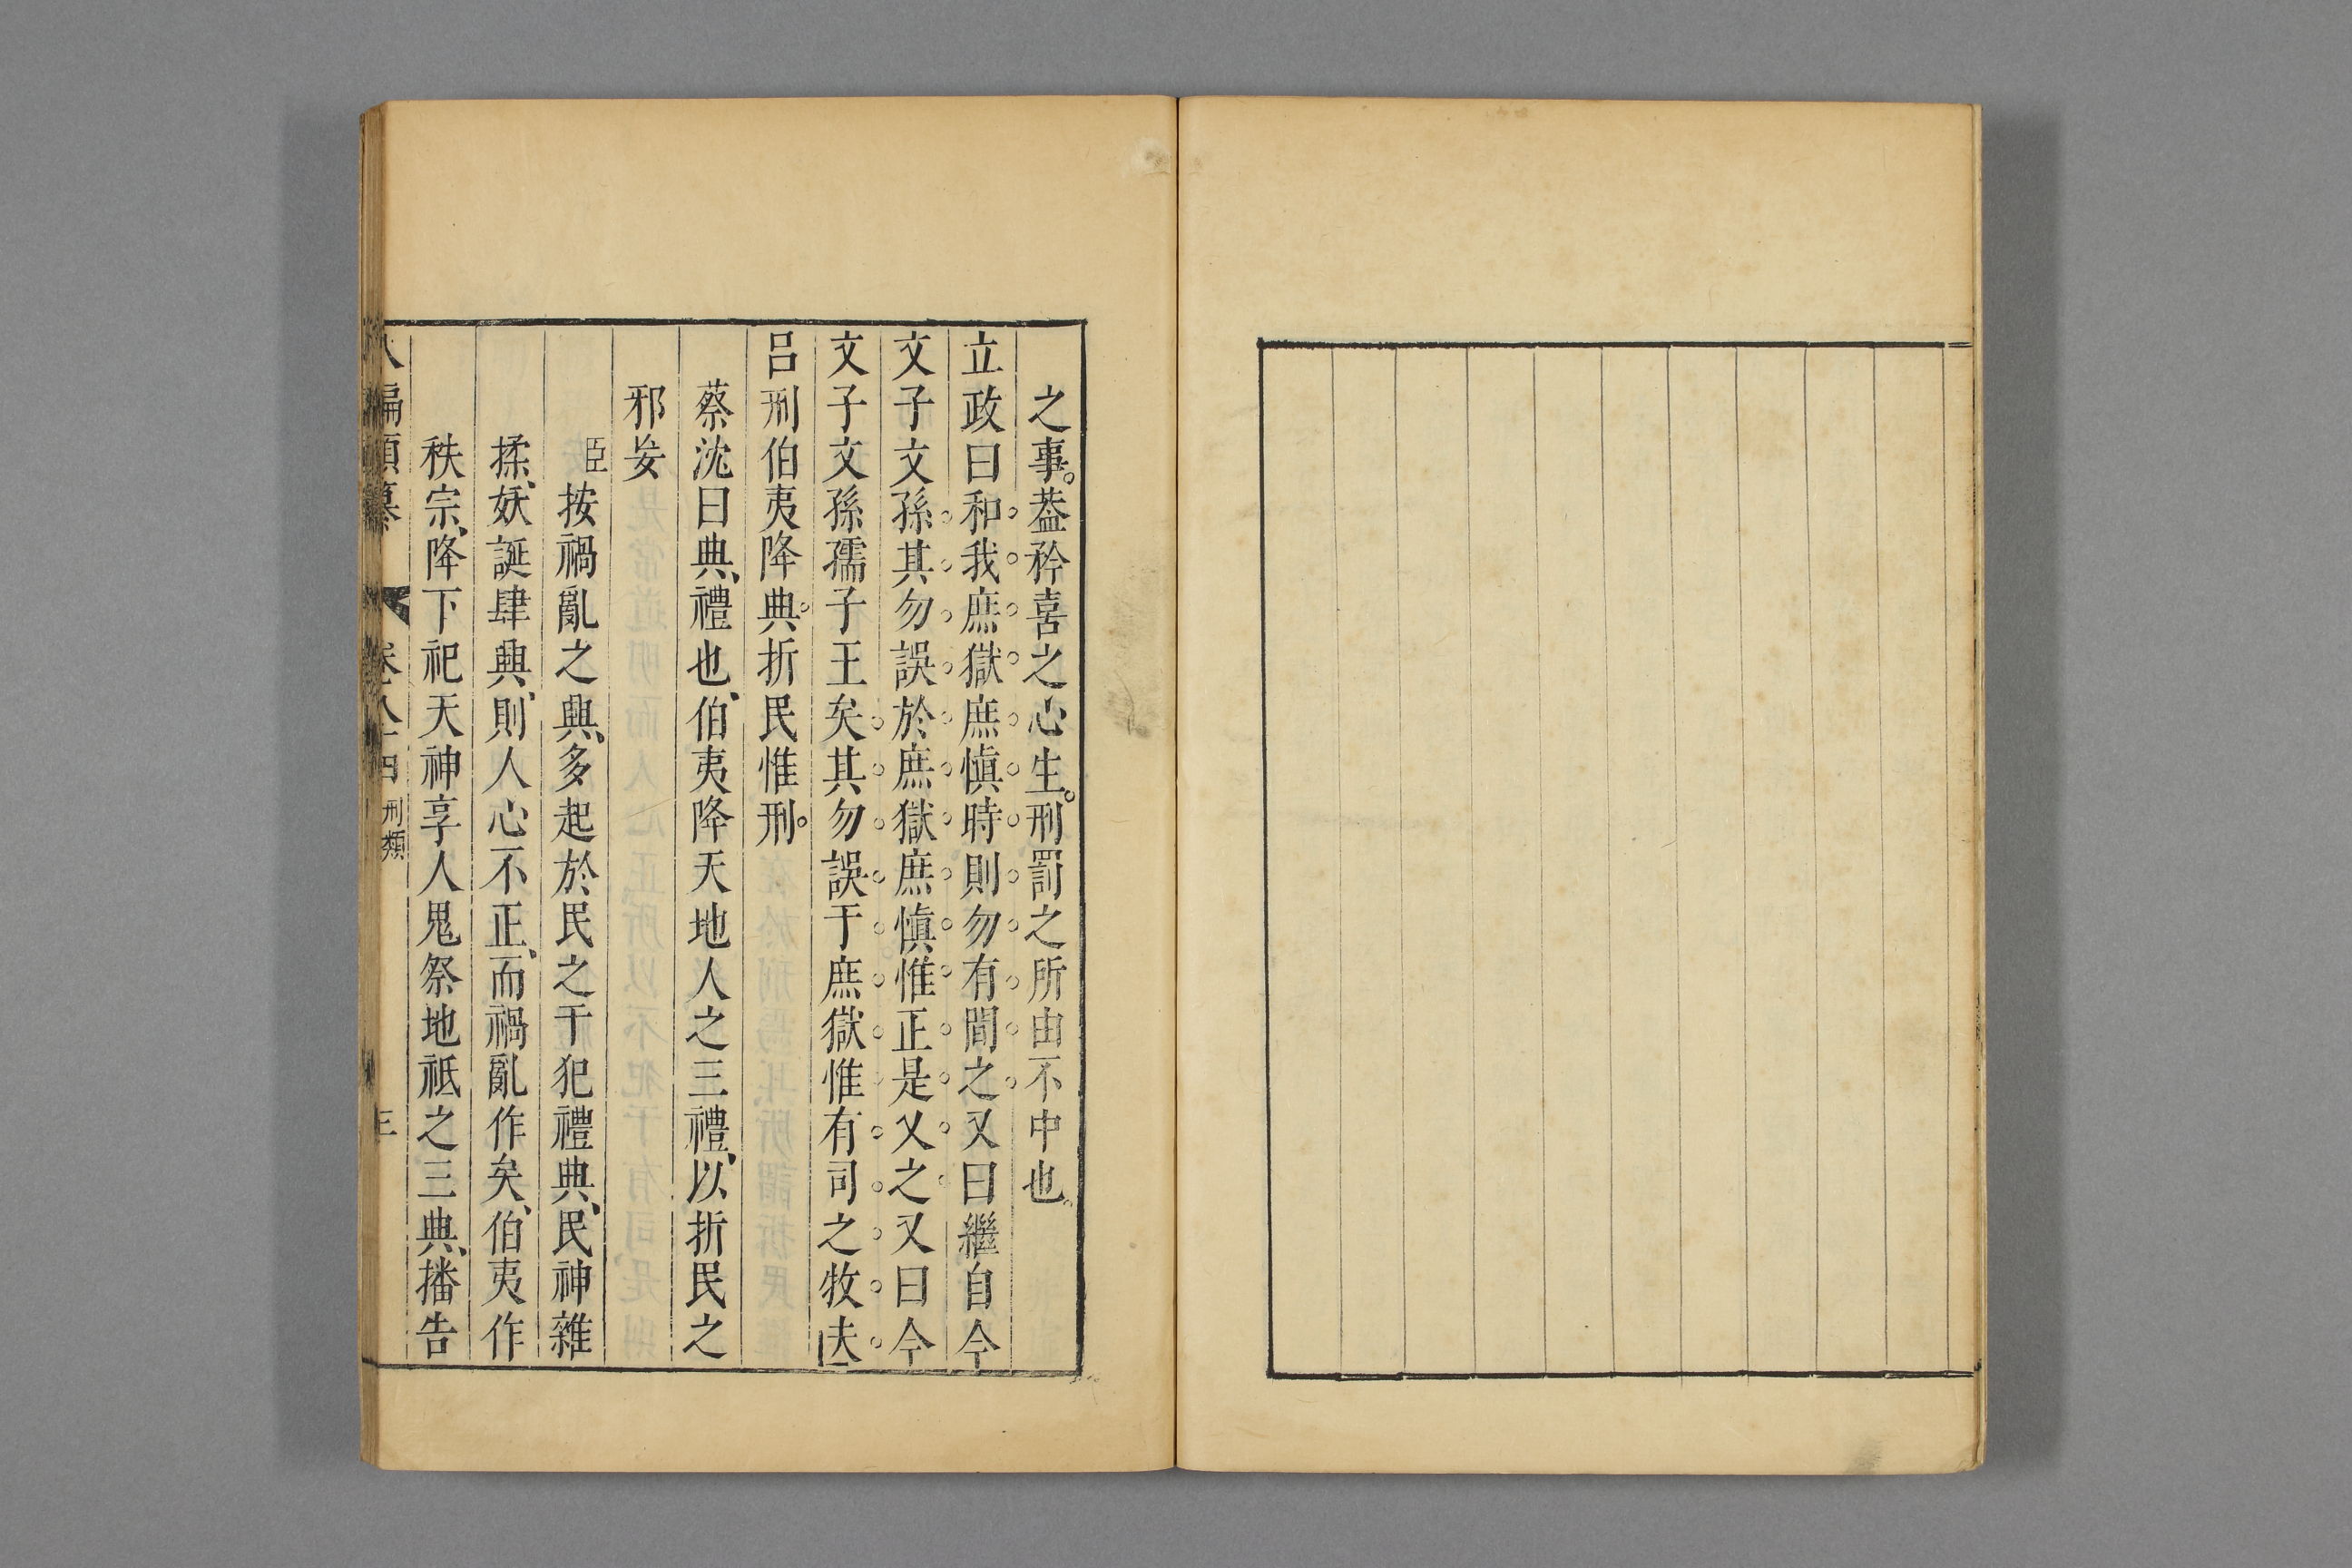 之事。葢矜喜之心生。刑罰之所由不中也。
立政曰和我庶獄庶慎時則勿有間之又曰繼自今
文子文孫其勿誤於庶獄庶慎惟正是乂之又曰今
文子文孫孺子王矣其勿誤于庶獄惟有司之牧夫
呂刑伯夷降典折民惟刑
蔡沈曰典、禮也、伯夷降天地人之三禮、以折民之
邪妄
臣按禍亂之興、多起於民之干犯禮典、民神雜
揉、妖誕肆興、則人心不正、而禍亂作矣、伯夷作
秩宗、降下祀天神享人鬼祭地祗之三典、播告
八編類纂 卷八十四 刑類 三